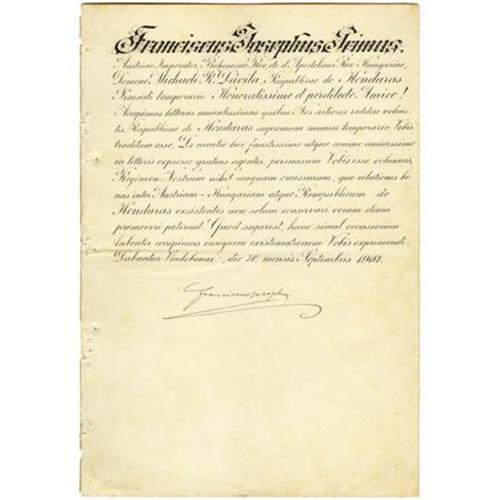 Franciscus Josephus Primus,
Austriae Imperator, Bohemiae Rex etc. et Apostolicus Rex Hungariae,
Domino Michaeli R. Dávila, Reipublicae de Honduras
Praesidi temporario. Honoratissime et perdilecte Amice!
Accepimus litteras amantissimas quibus Nos certiores reddere voluis-
tis, Reipublicae de Honduras supremum munus temporario Vobis
traditum esse. De nuntio hoc faustissimo atque animo amicissimo
in litteris expresso gratias agentes, persuasum Vobis esse volumus,
Regimen Nostrum nihil unquam omissurum, quo relationes bo-
nas inter Austriam-Hungariam atque Rempublicam de
Honduras existentes non solum conservari verum etiam
promoveri poterunt. Quod superest, hanc simul occasionem
lubenter arripimus insignem existimationem Vobis exprimendi.
Dabantur Vindobonae, die 30 mensis Septembris 1907.
Franciscus Josephus